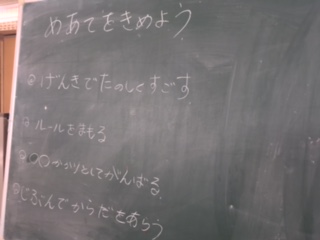 めあてをきめよう
②げんきでたのしくすごす
②ルールをまもる
②○○かかりとしてがんばる
②じぶんでからだをあらう